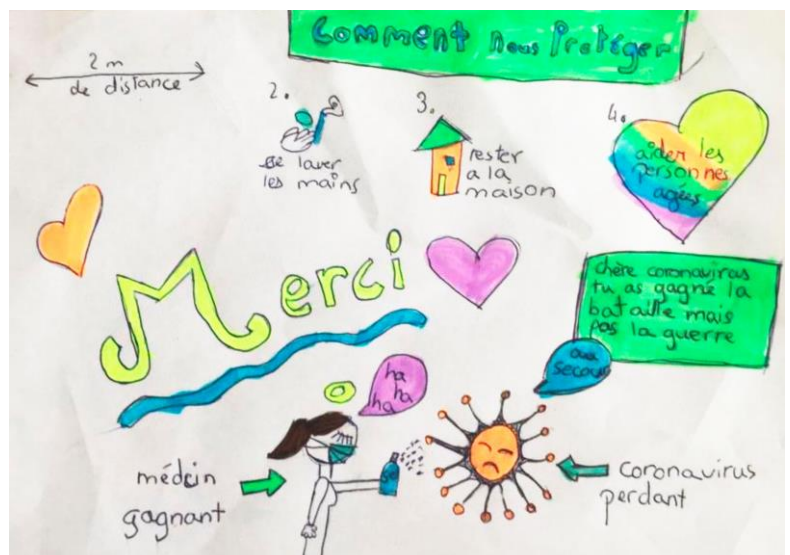 Comment nous Protéger
2 m
de distance
2.
se laver
les mains
3.
rester
a la
maison
4.
aider les
personnes
agées
Merci
chère coronavirus
tu as gagné la
bataille mais
pas la guerre
aux
secours
ha
ha
ha
médcin
gagnant
coronavirus
perdant